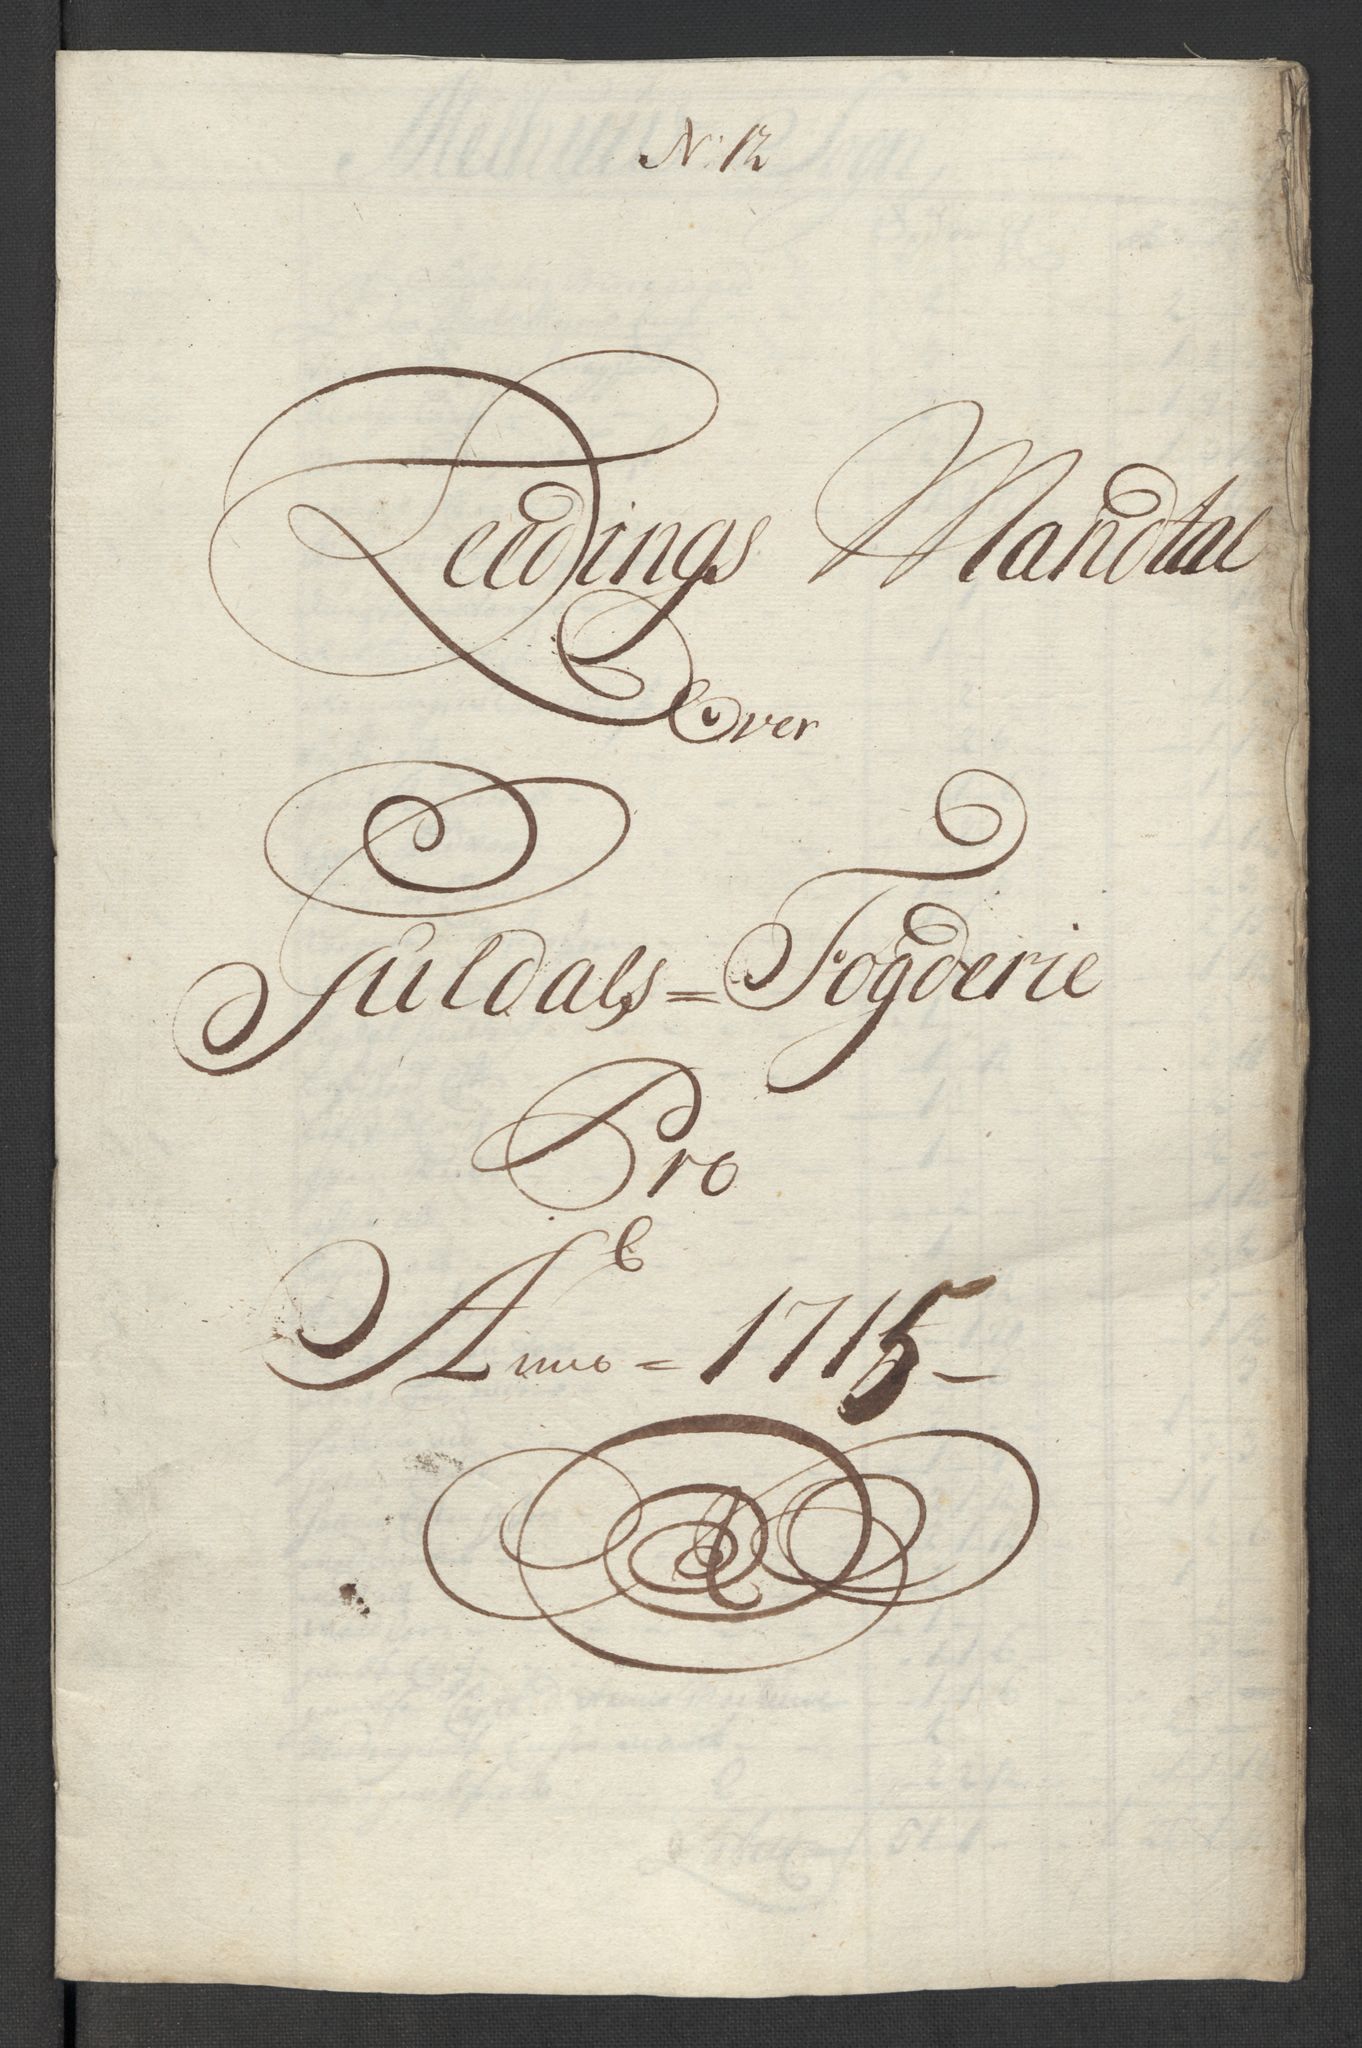 No: 12
Leedings Mandtal
Over
Guldals = Fogderie
Pro
Anno = 1715 –